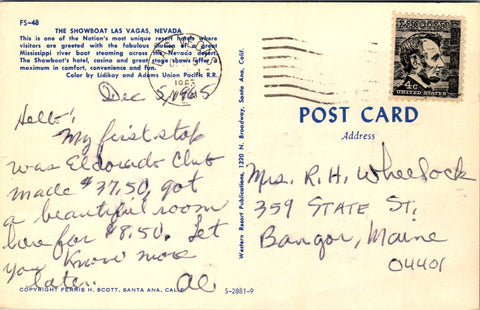 FS-48
THE SHOWBOAT LAS VAGAS, NEVADA
This is one of the Nation's most unique resort hotels where
visitors are greeted with the fabulous illusion of a great
Mississippi river boat steaming across the Nevada desert.
The Showboat's hotel, casino and great stage shows offer a
maximum in comfort, convenience and fun.
Color by Lidikay and Adams Union Pacific R.R.
Dec 5, 1965
Hello!
My first stop
was Eldorado Club
made $37.50, got
a beautiful room
here for $8.50. Let
you know more
later. Al
COPYRIGHT FERRIS H. SCOTT, SANTA ANA, CALIF.
S-2881-9
Western Resort Publications, 1320 N. Broadway, Santa Ana, Calif.
4c
UNITED STATES
POST CARD
Address
Mrs. R. H. Wheelock
359 STATE ST.
Bangor, Maine
04401